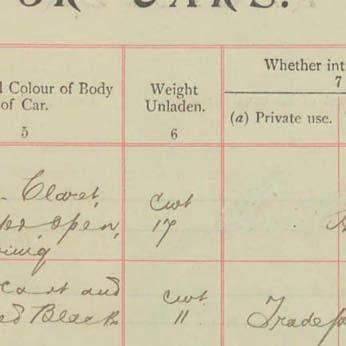 CARS.
Colour of Body
of Car.
5
Weight
Unladen.
6
Whether int
7
(a) Private use.
Claret,
open,
cwt
17
and
Black
cwt
11
Trade